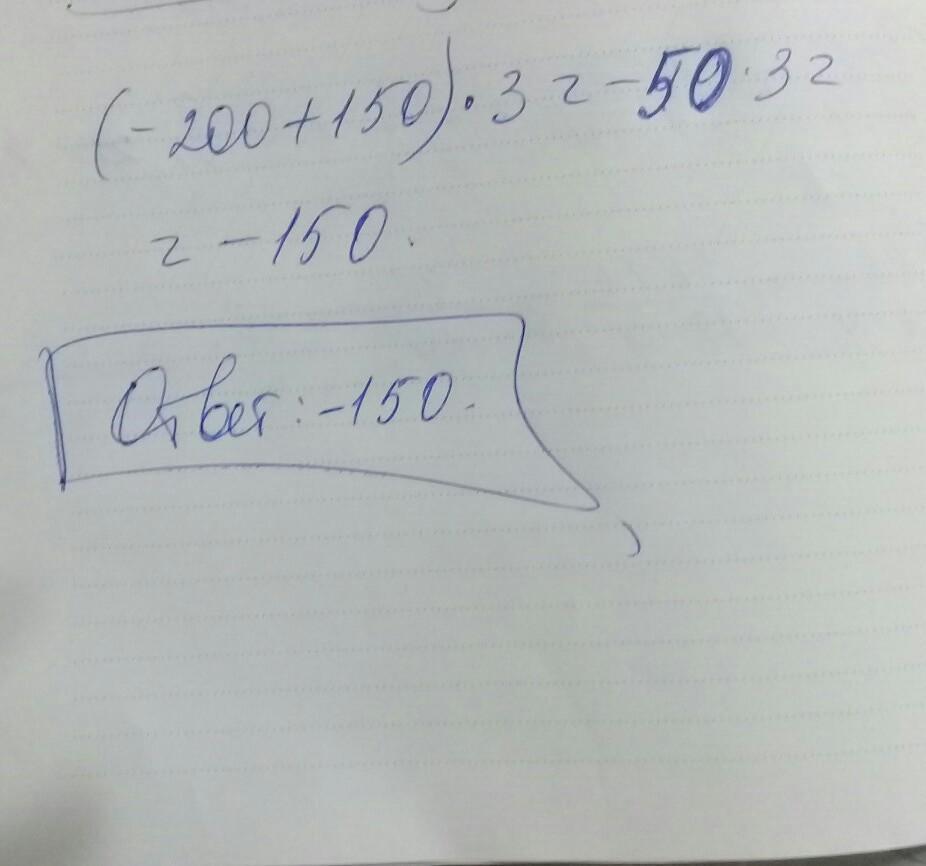 (-200+150)·3=-50·3=
=-150.
Ответ: -150.